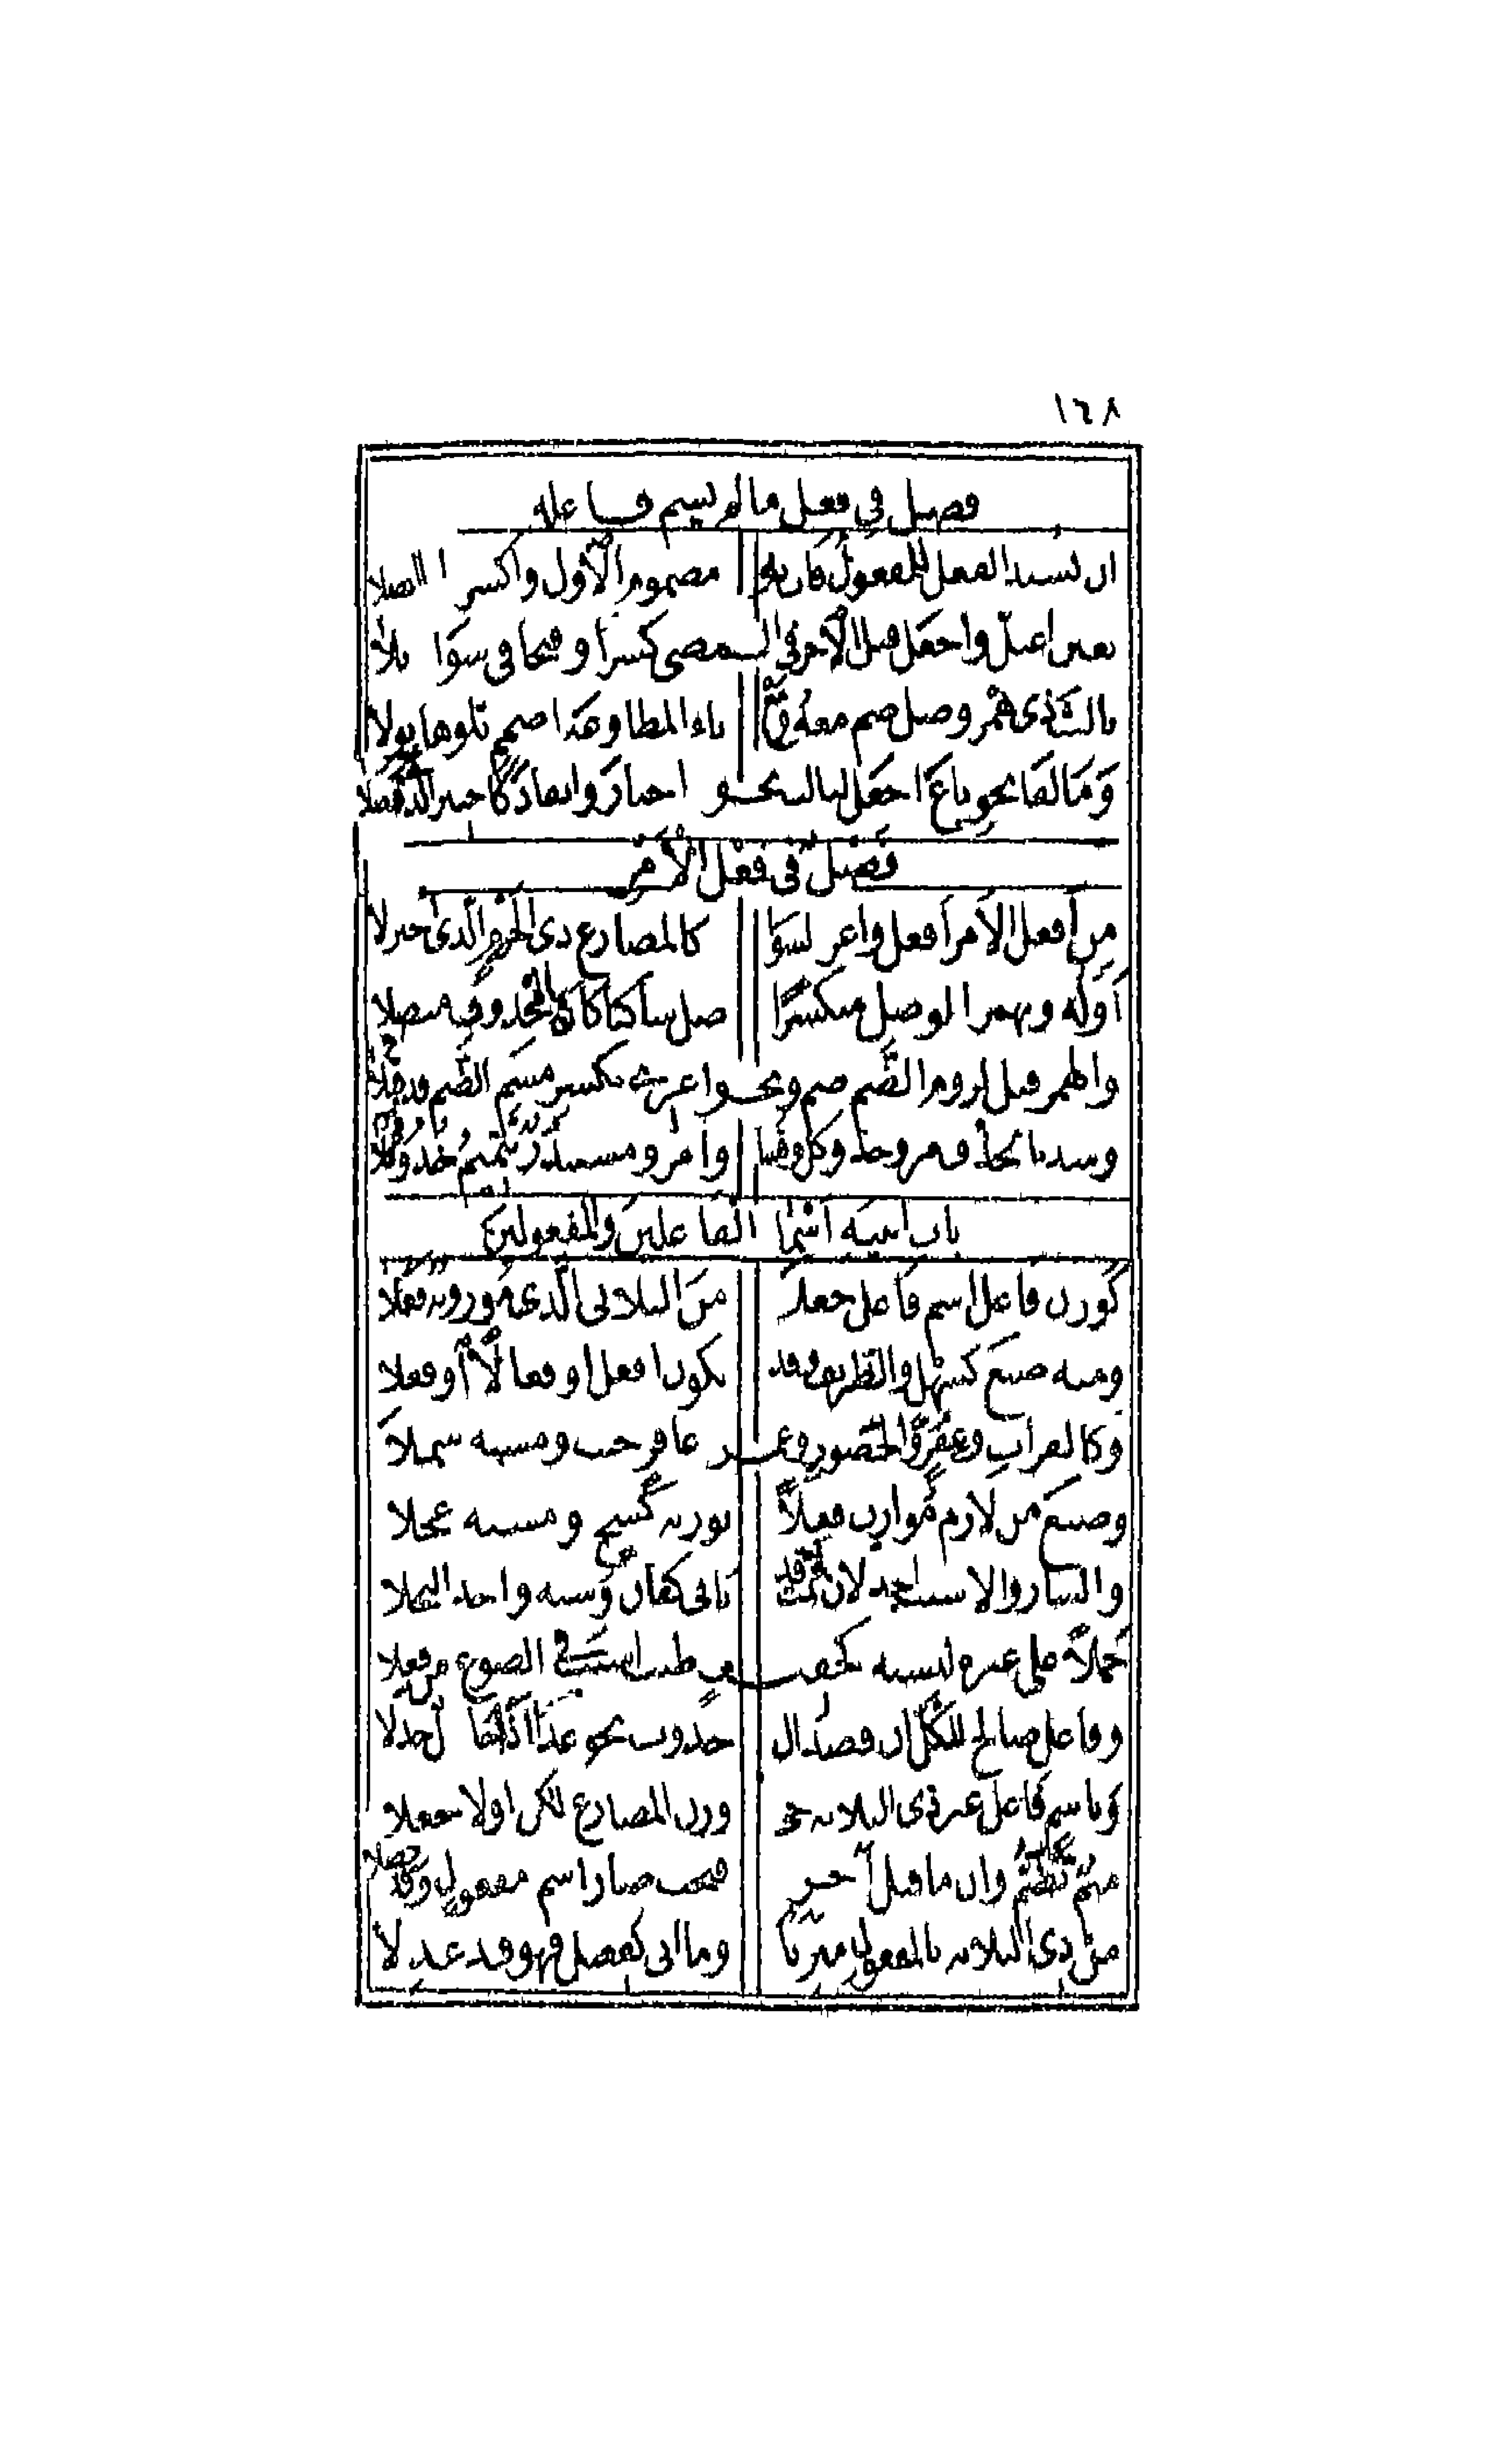 ١٦٨
فصل في فعل ما لم يسم فاعله
ان تسند الفعل للمفعول فات به مضموم الأول واكسره اذا اتصلا
بعين اعتل واجعل قبل الآخر في المضي كسرا وفتحا في سواه تلا
ثالث ذي همز وصل ضم معه ومع تاء المطاوعة اضمم تلوها بولا
وَمَا لفا نحو باع اجعل لثالث نحو اختار وانقاد كاختير الذي فضلا
فصل في فعل الأمر
من أفعل الأمر أفعل واعزه لسواه كالمضارع ذي الجزم الذي اختزلا
أوله وبهمز الوصل منكسرا صل ساكنا كان بالمحذوف متصلا
والهمز قبل لزوم الضم ضم ونحو اغزي بكسر مشم الضم قد قبلا
وشذ بالحذف مر وخذ وكل وفشا وامر ومستندر تتميم خذ وكلا
باب ابنية اسماء الفاعلين والمفعولين
كوزن فاعل اسم فاعل جعلا من الثلاثي الذي ما وزنه فعلا
ومنه صيغ كسهل والظريف وقد يكون افعل او فعالا أو فعلا
وكالفرات وعفر والحصور وغمر عاقر جنب ومشبه ثملا
وصيغ من لازم موازن فعلا بوزنه كشج ومشبه عجلا
والشاز والاشنب الجذلان ثمت قد ياتي كفان وشبه واحد البخلا
حملا على غيره لنسبة كخفيف طيب اشيب في الصوغ من فعلا
وفاعل صالح للكل ان قصد الحدوث نحو غدا ذا جذلا
وباسم فاعل غير ذي الثلاثة جئ وزن المضارع لكن اولا جعلا
ميم تضم وان ما قبل آخره فتحت صار اسم مفعول وقد حصلا
من ذي الثلاثة بالمفعول متزنا وما اتى كفعيل فهو قد عدلا